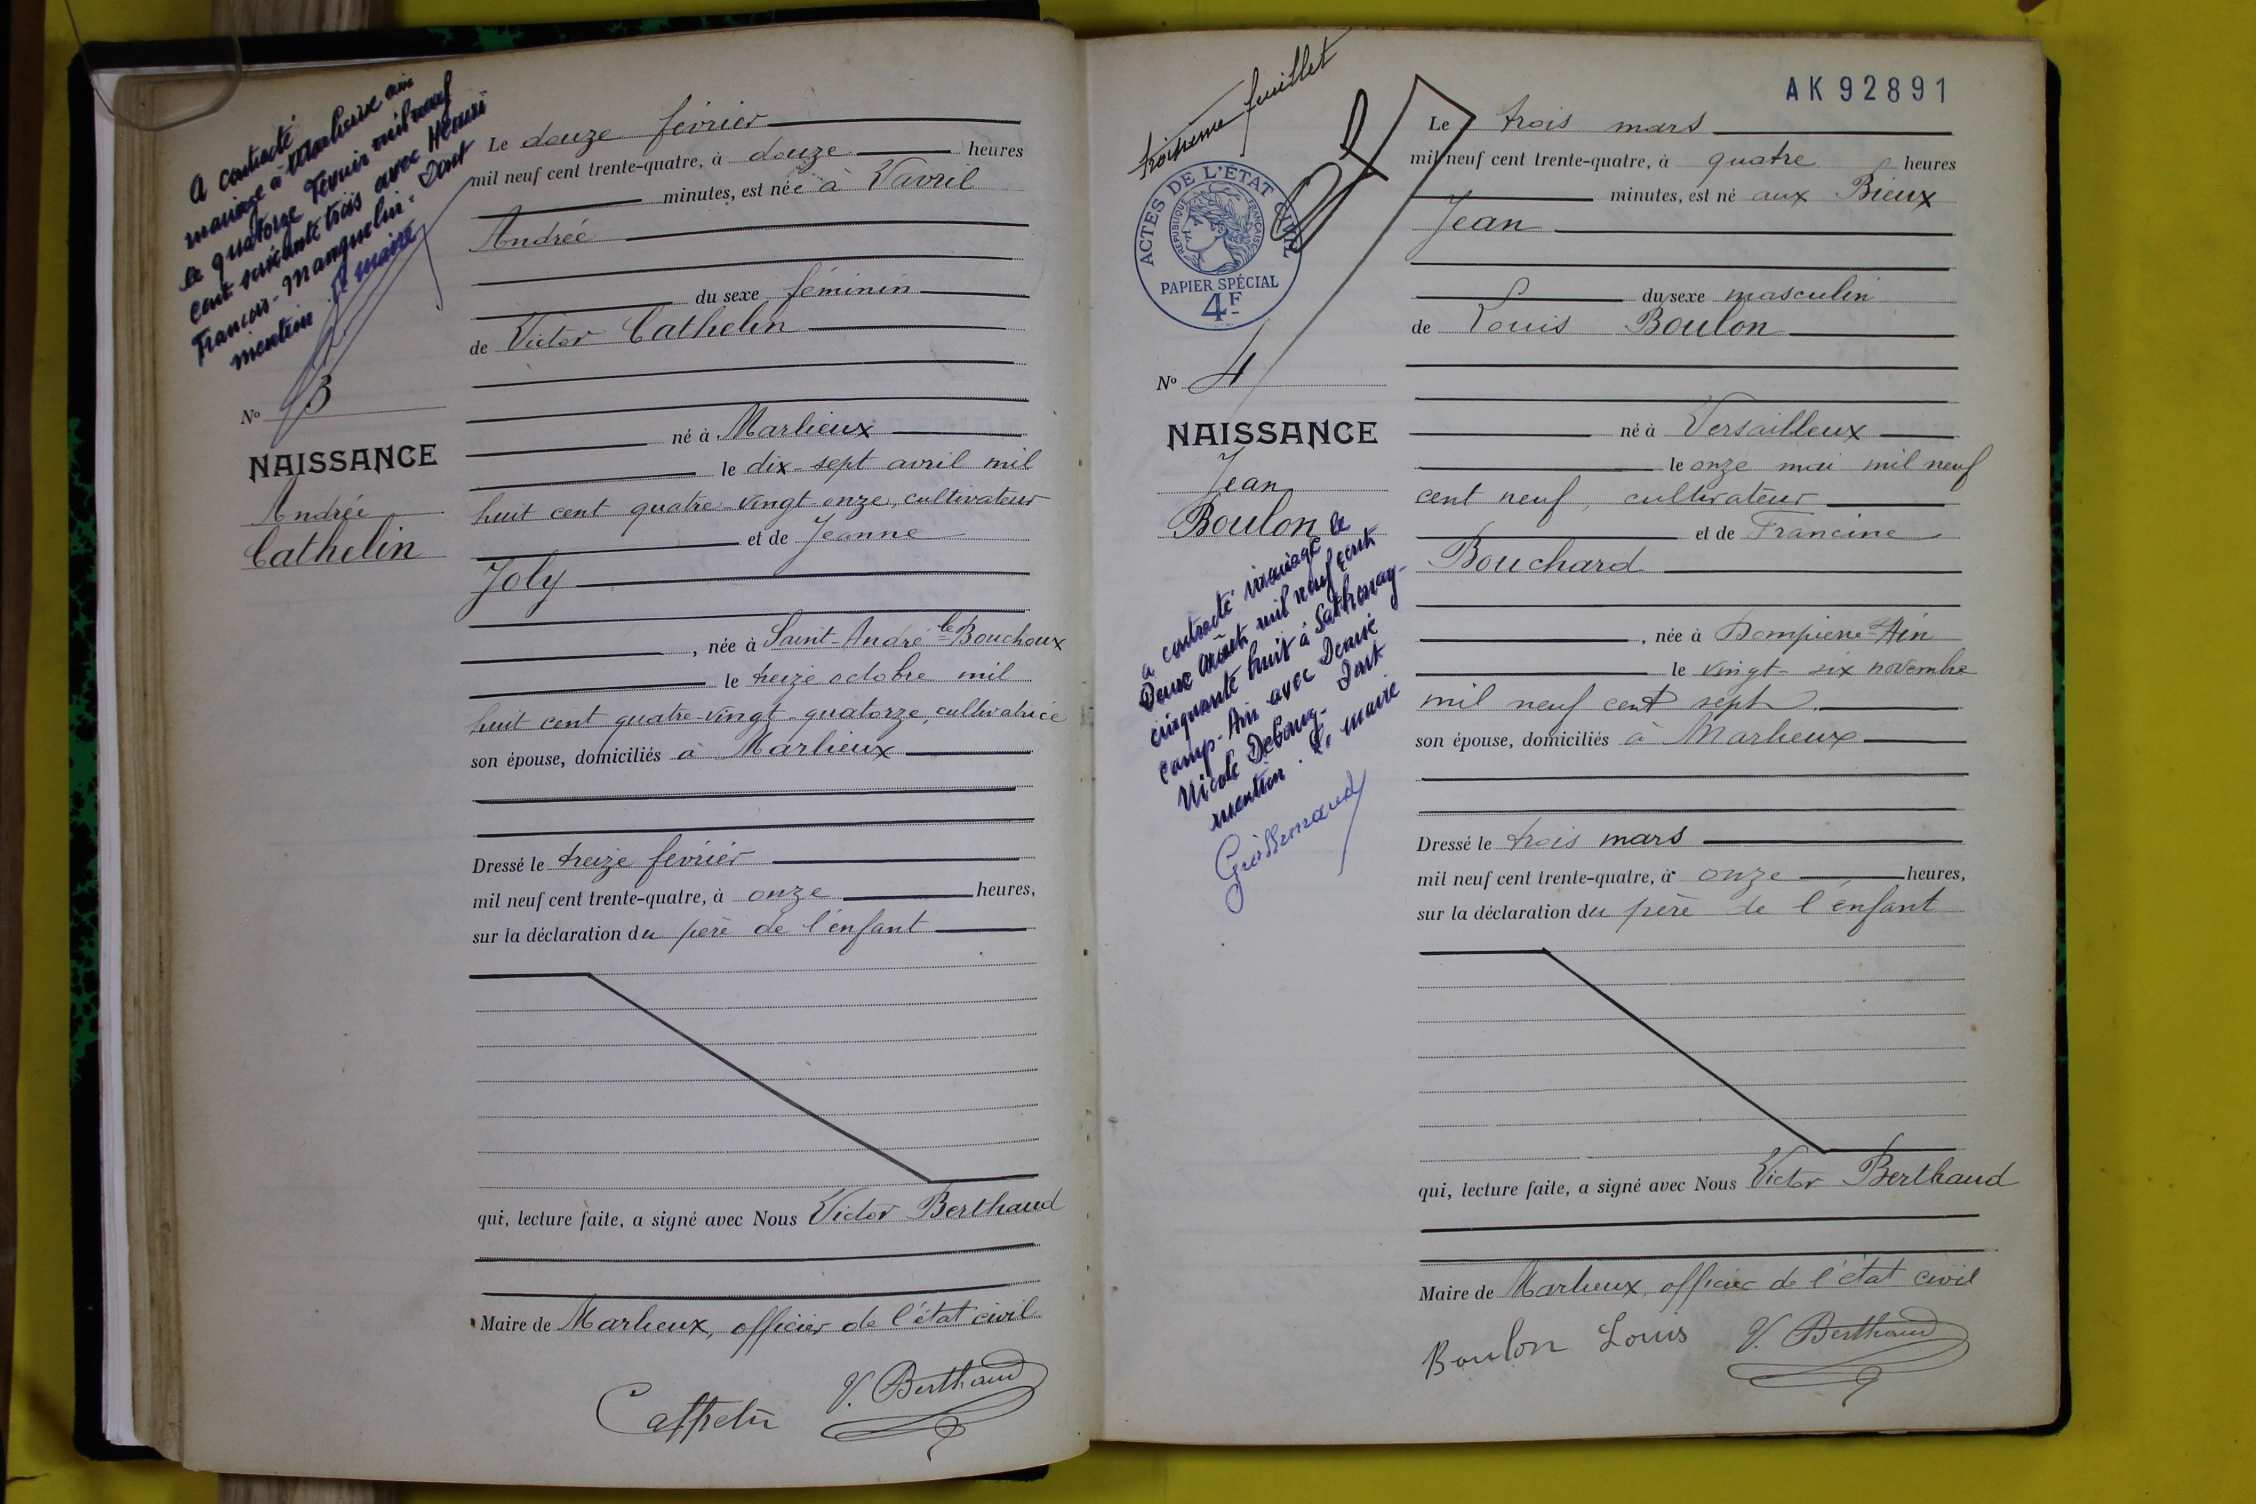 A contracté
mariage à Marlieux ain
le quatorze Février mil neuf
cent soixante trois avec Henri
François Manguelin. Dont
mention le maire
N° 3
NAISSANCE
Andrée
Cathelin
Le douze février
mil neuf cent trente-quatre, à douze heures
minutes, est née à Vavril
Andrée
du sexe féminin
de Victor Cathelin
né à Marlieux
le dix-sept avril mil
huit cent quatre-vingt onze, cultivateur
et de Jeanne
Joly
, née à Saint-André le Bouchoux
le treize octobre mil
huit cent quatre-vingt-quatorze, cultivatrice
son épouse, domiciliés à Marlieux
Dressé le treize février
mil neuf cent trente-quatre, à onze heures,
sur la déclaration du père de l'enfant
qui, lecture faite, a signé avec Nous Victor Berthaud
Maire de Marlieux, officier de l'état civil
Cathelin V. Berthaud
troisième feuillet
AK 92891
ACTES DE L'ÉTAT CIVIL
RÉPUBLIQUE FRANÇAISE
PAPIER SPÉCIAL
4F
N° 4
NAISSANCE
Jean
Boulon
a contracté mariage le
Deux Août mil neuf cent
cinquante huit à Sathonay-
Camp. Ain avec Denise
Nicole Debourg. Dont
mention. Le maire
Le trois mars
mil neuf cent trente-quatre, à quatre heures
minutes, est né aux Brieux
Jean
du sexe masculin
de Louis Boulon
né à Versailleux
le onze mai mil neuf
cent neuf, cultivateur
et de Francine
Bouchard
, née à Dompierre Ain
le vingt-six novembre
mil neuf cent sept
son épouse, domiciliés à Marlieux
Dressé le trois mars
mil neuf cent trente-quatre, à onze heures,
sur la déclaration du père de l'enfant
qui, lecture faite, a signé avec Nous Victor Berthaud
Maire de Marlieux, officier de l'état civil
Boulon Louis V. Berthaud